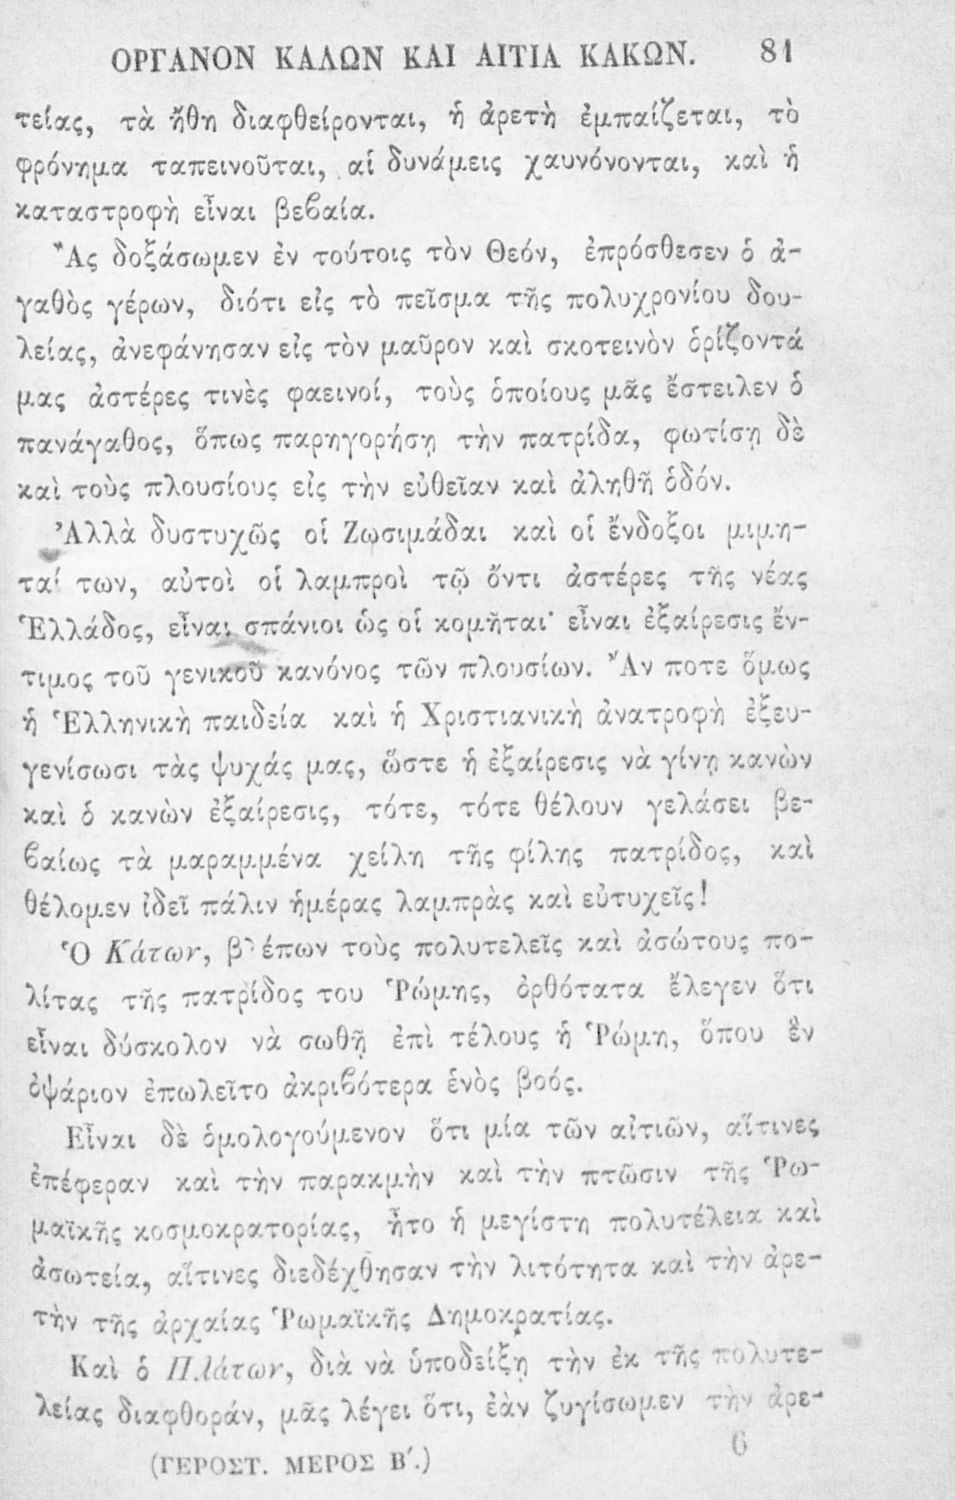 ΟΡΓΑΝΟΝ ΚΑΛΩΝ ΚΑΙ ΑΙΤΙΑ ΚΑΚΩΝ. 81
τείας, τὰ ἤθη διαφθείρονται, ἡ ἀρετὴ ἐμπαίζεται, τὸ
φρόνημα ταπεινοῦται, αἱ δυνάμεις χαυνόνονται, καὶ ἡ
καταστροφὴ εἶναι βεϐαία.
Ἂς δοξάσωμεν ἐν τούτοις τὸν Θεόν, ἐπρόσθεσεν ὁ ἀ-
γαθὸς γέρων, διότι εἰς τὸ πεῖσμα τῆς πολυχρονίου δου-
λείας, ἀνεφάνησαν εἰς τὸν μαῦρον καὶ σκοτεινὸν ὁρίζοντά
μας ἀστέρες τινὲς φαεινοί, τοὺς ὁποίους μᾶς ἔστειλεν ὁ
πανάγαθος, ὅπως παρηγορήσῃ τὴν πατρίδα, φωτίσῃ δὲ
καὶ τοὺς πλουσίους εἰς τὴν εὐθεῖαν καὶ ἀληθῆ ὁδόν.
Ἀλλὰ δυστυχῶς οἱ Ζωσιμάδαι καὶ οἱ ἔνδοξοι μιμη-
ταί των, αὐτοὶ οἱ λαμπροὶ τῷ ὄντι ἀστέρες τῆς νέας
Ἑλλάδος, εἶναι σπάνιοι ὡς οἱ κομῆται· εἶναι ἐξαίρεσις ἔν-
τιμος τοῦ γενικοῦ κανόνος τῶν πλουσίων. Ἂν ποτε ὅμως
ἡ Ἑλληνικὴ παιδεία καὶ ἡ Χριστιανικὴ ἀνατροφὴ ἐξευ-
γενίσωσι τὰς ψυχάς μας, ὥστε ἡ ἐξαίρεσις νὰ γίνῃ κανὼν
καὶ ὁ κανὼν ἐξαίρεσις, τότε, τότε θέλουν γελάσει βε-
ϐαίως τὰ μαραμμένα χείλη τῆς φίλης πατρίδος, καὶ
θέλομεν ἰδεῖ πάλιν ἡμέρας λαμπρὰς καὶ εὐτυχεῖς!
Ὁ Κάτων, βλέπων τοὺς πολυτελεῖς καὶ ἀσώτους πο-
λίτας τῆς πατρίδος του Ῥώμης, ὀρθότατα ἔλεγεν ὅτι
εἶναι δύσκολον νὰ σωθῇ ἐπὶ τέλους ἡ Ῥώμη, ὅπου ἓν
ὀψάριον ἐπωλεῖτο ἀκριϐότερα ἑνὸς βοός.
Εἶναι δὲ ὁμολογούμενον ὅτι μία τῶν αἰτιῶν, αἵτινες
ἐπέφεραν καὶ τὴν παρακμὴν καὶ τὴν πτῶσιν τῆς Ῥω-
μαϊκῆς κοσμοκρατορίας, ἦτο ἡ μεγίστη πολυτέλεια καὶ
ἀσωτεία, αἵτινες διεδέχθησαν τὴν λιτότητα καὶ τὴν ἀρε-
τὴν τῆς ἀρχαίας Ῥωμαϊκῆς Δημοκρατίας.
Καὶ ὁ Πλάτων, διὰ νὰ ὑποδείξῃ τὴν ἐκ τῆς πολυτε-
λείας διαφθοράν, μᾶς λέγει ὅτι, ἐὰν ζυγίσωμεν τὴν ἀρε-
(ΓΕΡΟΣΤ. ΜΕΡΟΣ Β΄.) 6